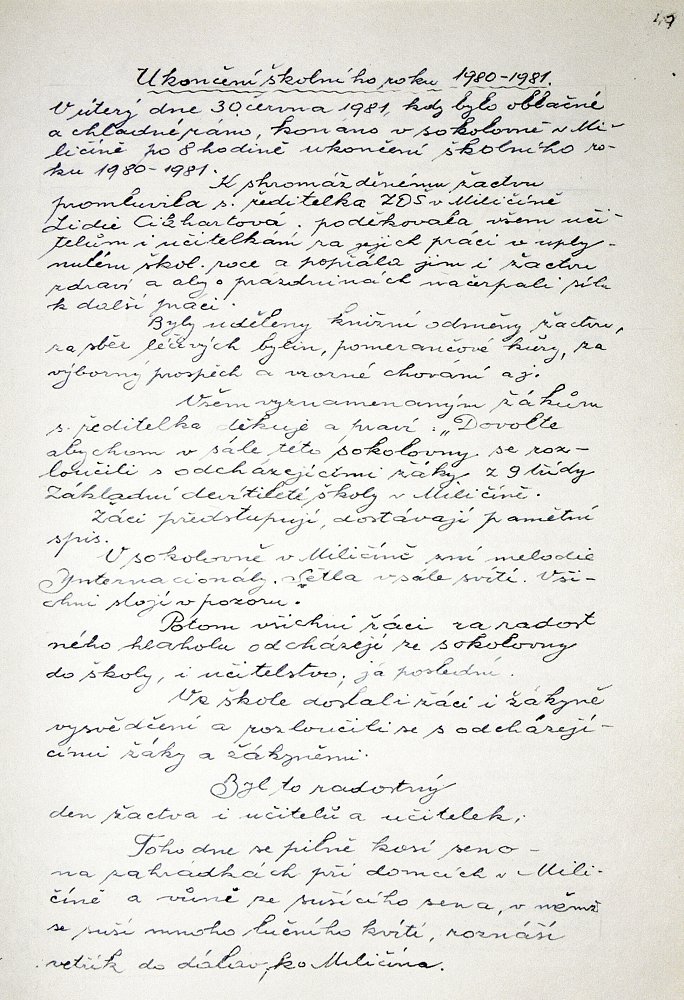 Ukončení školního roku 1980-1981.
V úterý dne 30. června 1981, kdy bylo oblačné
a chladné ráno, konáno v sokolovně v Mi-
ličíně po 8 hodině ukončení školního ro-
ku 1980-1981.
K shromážděnému žactvu
promluvila s. ředitelka ZDŠ v Miličíně
Lidie Cikhartová, poděkovala všem uči-
telům i učitelkám za jejich práci v uply-
nulém škol. roce a popřála jim i žactvu
zdraví a aby o prázdninách načerpali sílu
k další práci.
Byly uděleny knižní odměny žactvu,
za sběr léčivých bylin, pomerančové kůry, za
výborný prospěch a vzorné chování aj.
Všem vyznamenaným žákům
s. ředitelka děkuje a praví: „Dovolte
abychom v sále této sokolovny se roz-
loučili s odcházejícími žáky z 9 třídy
Základní devítileté školy v Miličíně.
Žáci předstupují, dostávají pamětní
spis.
V sokolovně v Miličíně zní melodie
Internacionály. Světla v sále svítí. Vši-
chni stojí v pozoru.
Potom všichni žáci za radost
ného hlaholu odcházejí ze sokolovny
do školy, i učitelstvo, já poslední.
Ve škole dostali žáci i žákyně
vysvědčení a rozloučili se s odcházejí-
cími žáky a žákyněmi.
Byl to radostný
den žactva i učitelů a učitelek.
Toho dne se pilně kosí seno-
na zahrádkách při domcích v Mili-
číně a vůně ze sušícího sena, v němž
se suší mnoho lučního kvítí, roznáší
větřík do dálav, ko Miličína.